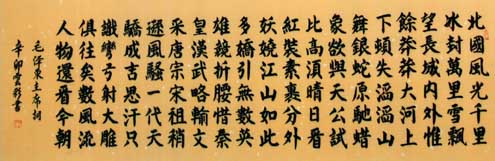 北國風光千里
冰封萬里雪飄
望長城內外惟
餘莽莽大河上
下頓失滔滔山
舞銀蛇原馳蠟
象欲與天公試
比高須晴日看
紅裝素裹分外
妖嬈江山如此
多嬌引無數英
雄競折腰惜秦
皇漢武略輸文
采唐宗宋祖稍
遜風騷一代天
驕成吉思汗只
識彎弓射大雕
俱往矣數風流
人物還看今朝
毛澤東主席詞
辛卯書